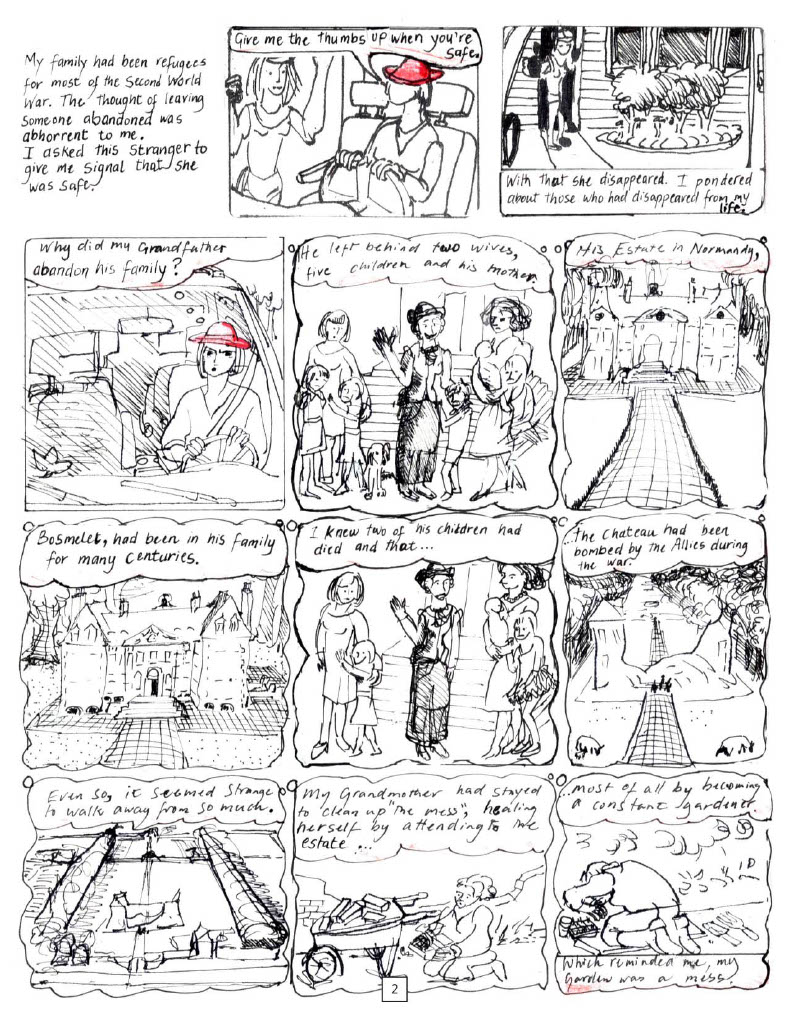 My family had been refugees
for most of the Second World
War. The thought of leaving
someone abandoned was
abhorrent to me.
I asked this Stranger to
give me signal that she
was safe.
Give me the thumbs up when you're
safe.
With that she disappeared. I pondered
about those who had disappeared from my
life.
Why did my Grandfather
abandon his family?
He left behind two wives,
five children and his mother.
His Estate in Normandy,
Bosmelet, had been in his family
for many centuries.
I knew two of his children had
died and that...
..the Chateau had been
bombed by the Allies during
the war.
Even so, it seemed strange
to walk away from so much.
My Grandmother had stayed
to clean up "the mess", healing
herself by attending to the
estate ...
...most of all by becoming
a constant gardener
Which reminded me, my
garden was a mess.
2